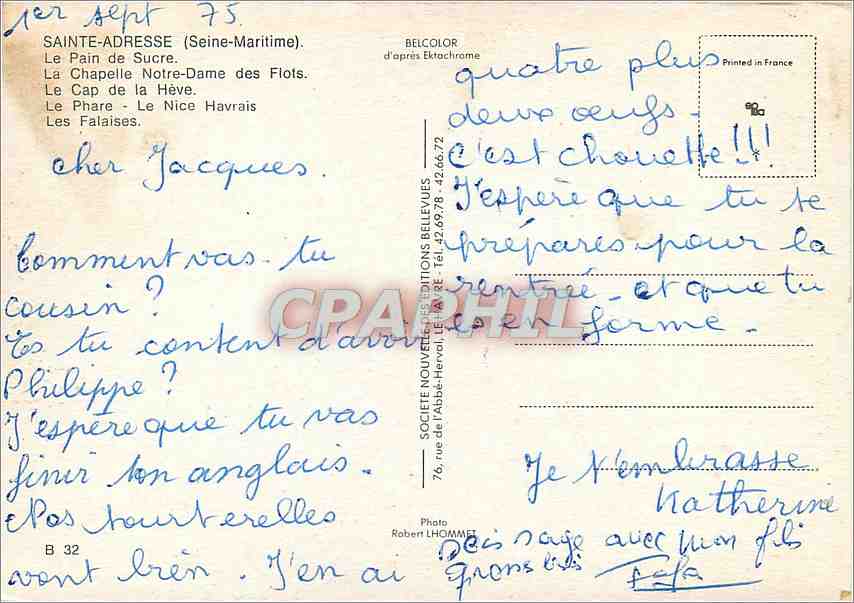 1er sept 75
SAINTE-ADRESSE (Seine-Maritime).
Le Pain de Sucre.
La Chapelle Notre-Dame des Flots.
Le Cap de la Hève.
Le Phare - Le Nice Havrais
Les Falaises.
cher Jacques.
Comment vas-tu
cousin ?
Es tu content d'avoir
Philippe ?
J'espère que tu vas
finir ton anglais.
Nos tourterelles
vont bien. J'en ai
B 32
BELCOLOR
d'après Ektachrome
SOCIETE NOUVELLE DES EDITIONS BELLEVUES
76, rue de l'Abbé-Herval, LE HAVRE - Tél. 42.69.78 - 42.66.72
Photo
Robert LHOMMET
CPAPHIL
Printed in France
quatre plus
deux œufs -
C'est chouette !!!
J'espère que tu te
prépares pour la
rentrée - et que tu
es en forme -
Je t'embrasse
Katherine
sois sage avec mon fils
gros